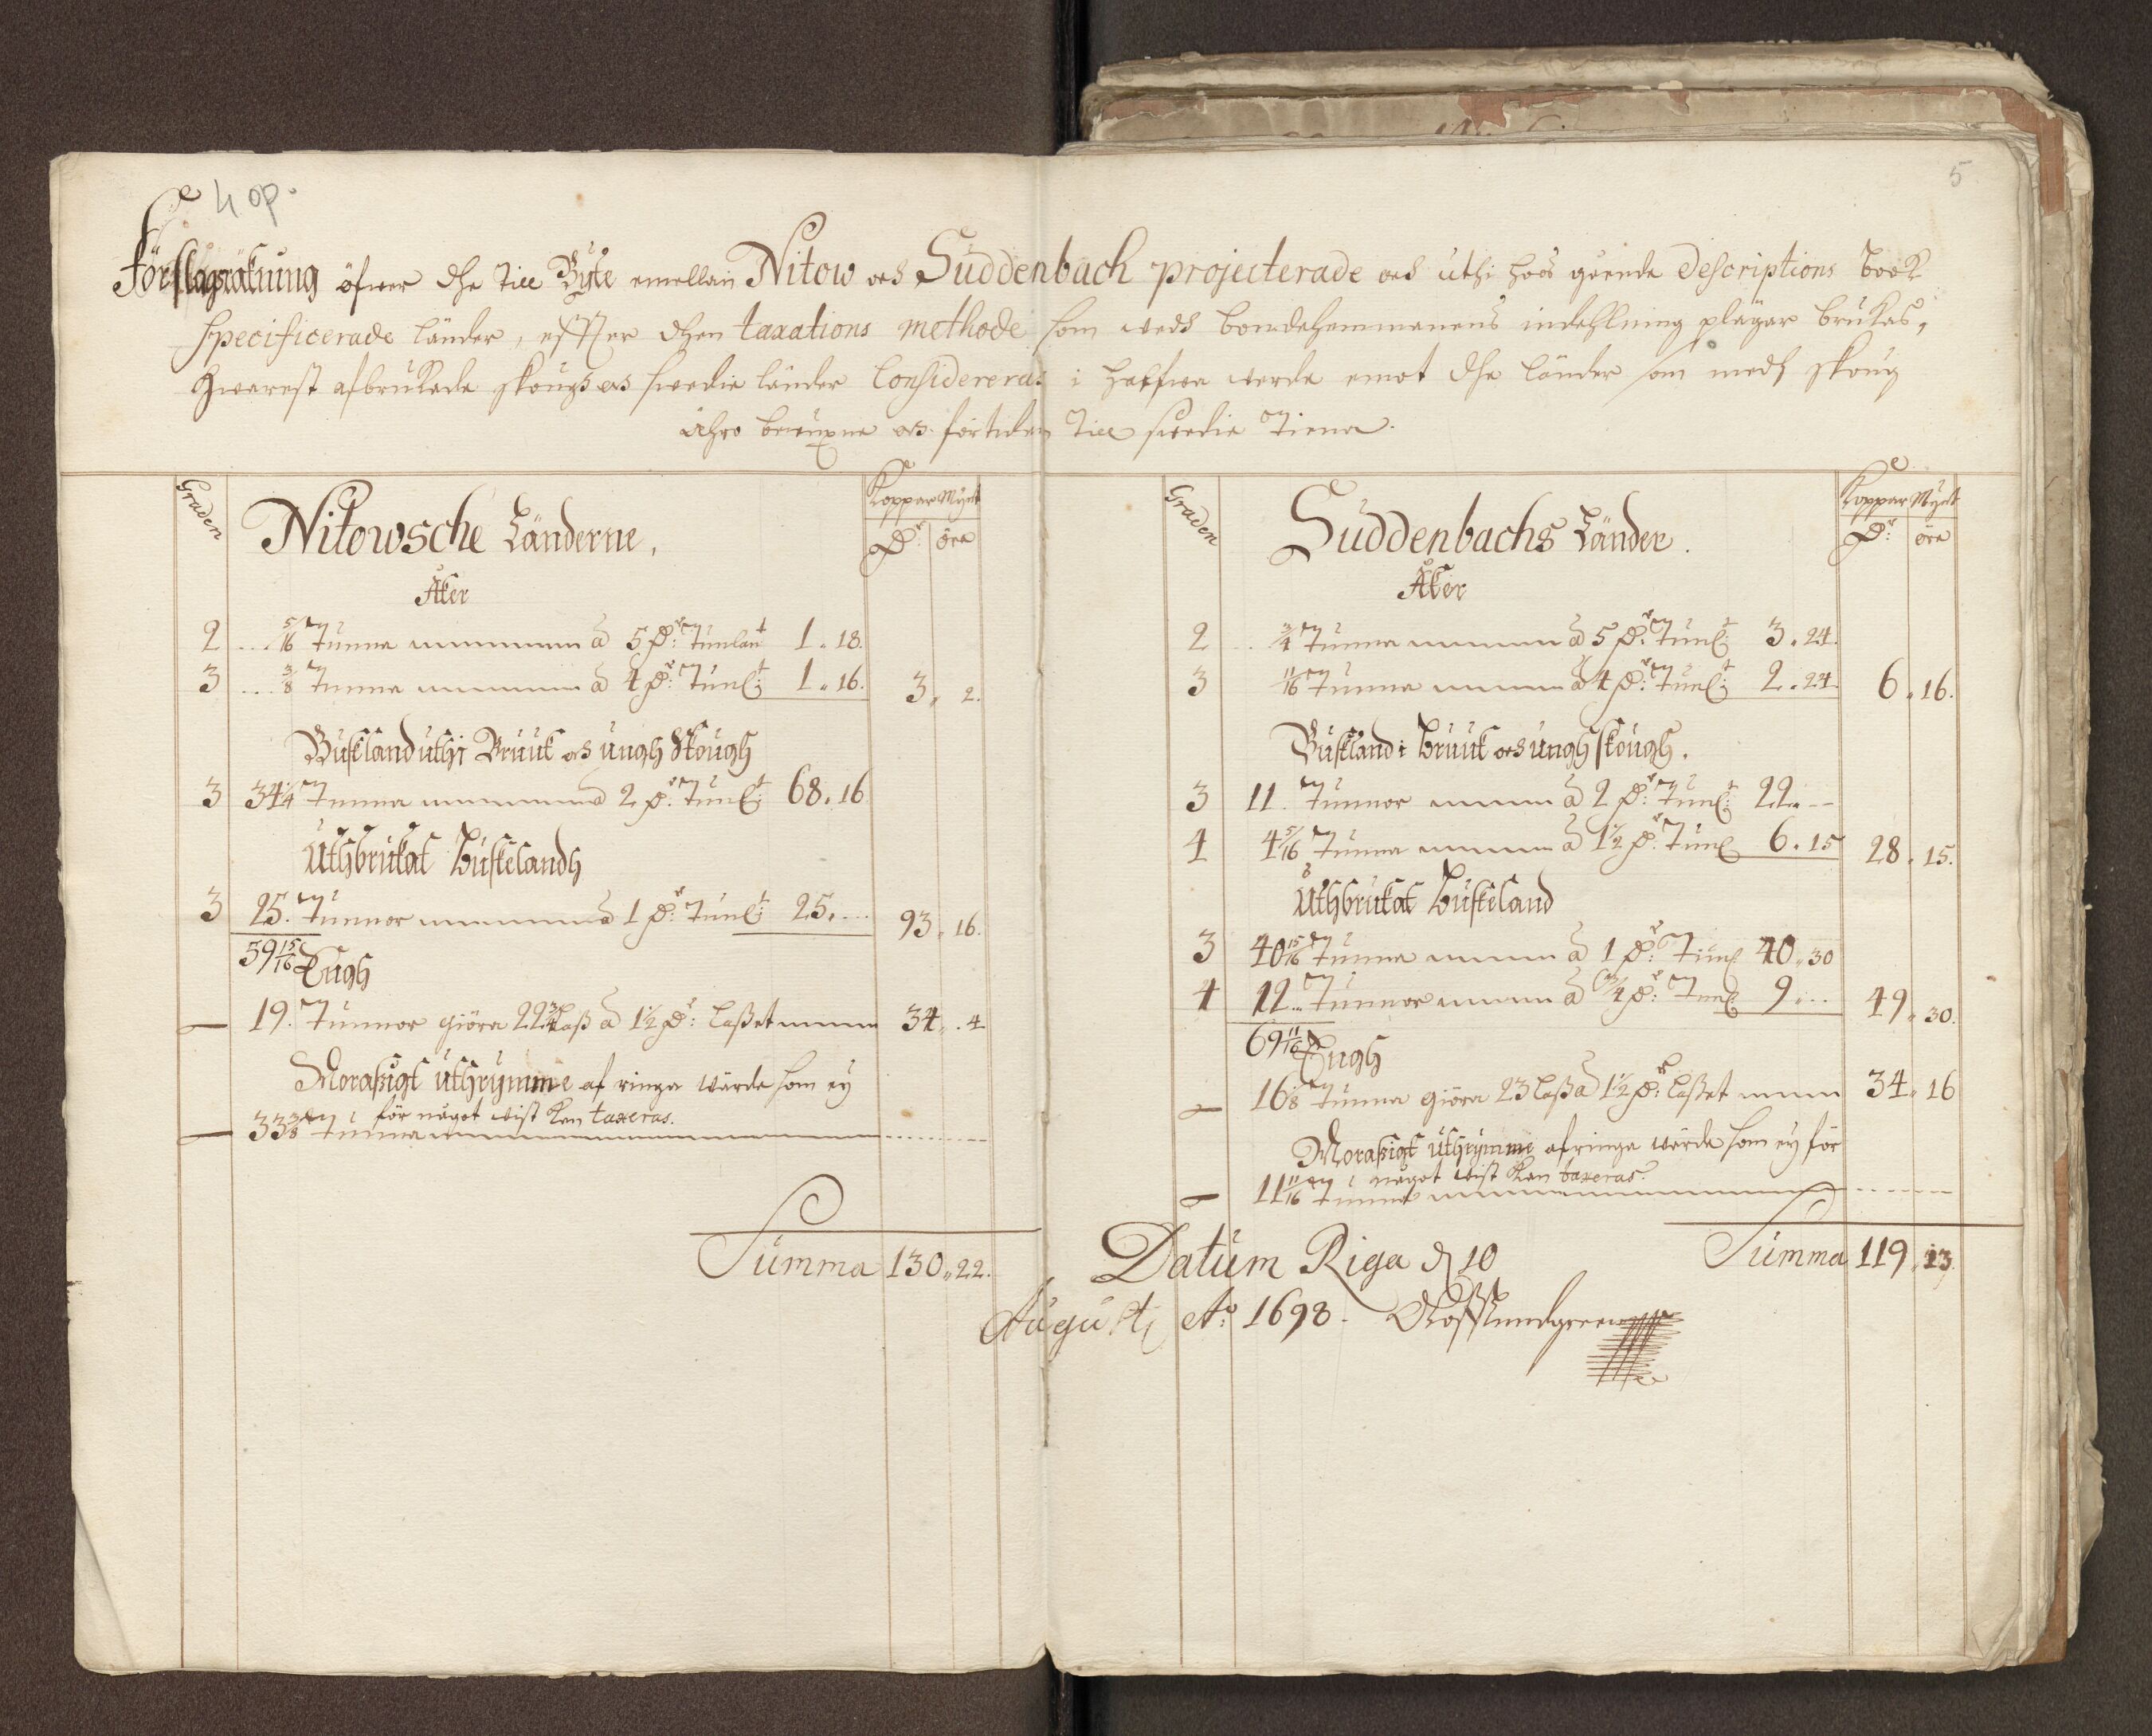 4 op.
5
Förslagsräkning öfwer dhe till Byte emellan Nitow och Suddenbach projecterade och uthi hoos gående Descriptions Book
specificerade länder, effter dhen taxations methode som wedh bondehemmanens indehlning plägar brukas,
hwarest afbrukade skougs och swedie länder Considereras i helfften werde emot dhe länder som medh skoug
ähro bewuxne och förtiden till swedie tiena.
Graden
Nitowsche Länderne.
Koppar Mynt
Dr: öre
Åker
2 ... 5/16 Tunna à 5 Dr: Tunland 1 „ 18.
3 ... 3/8 Tunna à 4 Dr: Tunl: 1 „ 16. 3 „ 2.
Buskland uthi Bruuk och ungh Skough
3 34 1/4 Tunna à 2 Dr: Tunl: 68 „ 16
Uthbrukat Buskelandh
3 25. Tunnor à 1 Dr: Tunl: 25 „ ... 93 „ 16.
59 15/16
Engh
— 19. Tunnor giöra 22 3/4 lass à 1 1/2 Dr: lasset 34 „ 4
Morassigt uthrymme af ringa wärde som ey
för något wist kan taxeras.
— 33 3/8 Tunna
Summa 130 „ 22.
Graden
Suddenbachs Länder.
Koppar Mynt
Dr: öre
Åker
2 ... 3/4 Tunna à 5 Dr: Tunl: 3 „ 24.
3 11/16 Tunna à 4 Dr: Tunl: 2 „ 24. 6 „ 16.
Buskland i bruuk och ungh skough.
3 11. Tunnor à 2 Dr: Tunl: 22 „ —
4 4 5/16 Tunna à 1 1/2 Dr: Tunl 6 „ 15 28 „ 15.
Uthbrukat Buskeland
3 40 15/16 Tunna à 1 Dr: Tunl 40 „ 30
4 12 .. Tunnor à 3/4 Dr: Tunl 9 „ ... 49 „ 30.
69 11/16
Engh
— 16 1/8 Tunna giöra 23 lass à 1 1/2 Dr: lasset 34 „ 16
Morassigt uthrymme af ringa wärde som ey för
något wist kan taxeras.
— 11 11/16 Tunna
Summa 119 „ 13.
Datum Riga d 10
Augusti Ao: 1698.